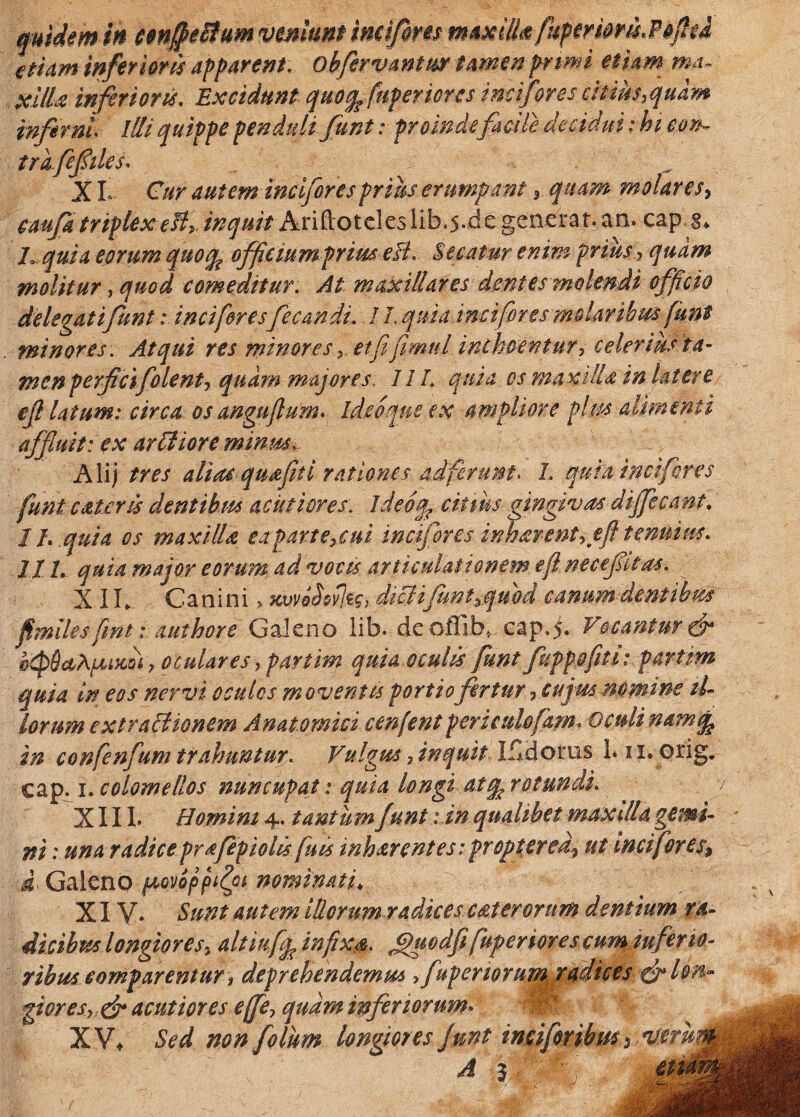 quidem in conſpectum veniunt inciſores maxillæ ſuperioris. Poſteà
etiam inferioris apparent. Obſervantur tamen primi etiam ma-
xillæ inferioris. Excidunt quoq; ſuperiores inciſores citiùs, quàm
inferni. Illi quippe penduli ſunt: proinde facilè decidui: hi con-
trà ſeßiles.
XI. Cur autem inciſores priùs erumpant, quam molares,
cauſa triplex eſt, inquit Ariſtoteles lib. 5. de generat. an. cap. 8.
I. quia eorum quoq; officium prius eſt. Secatur enim priùs, quàm
molitur, quod comeditur. At maxillares dentes molendi officio
delegati ſunt: inciſores ſecandi. II. quia inciſores molaribus ſunt
minores. Atqui res minores, etſi ſimul inchoentur, celeriùs ta-
men perfici ſolent, quàm majores. III. quia os maxillæ in latere
eſt latum: circa os anguſtum. Ideóque ex ampliore plus alimenti
affluit: ex arctiore minus.
Alij tres alias quæſiti rationes adferunt. I. quia inciſores
ſunt cæteris dentibus acutiores. Ideóq; citiùs gingivas diſſecant.
II. quia os maxillæ ea parte, cui inciſores inhærent, eſt tenuius.
III. quia major eorum ad vocis articulationem eſt neceßitas.
XII. Canini, κυνόδοντες, dicti ſunt, quòd canum dentibus
ſimiles ſint: authore Galeno lib. de oſſib. cap. 5. Vocantur &
ὀφθαλμικοὶ, oculares, partim quia oculis ſunt ſuppoſiti: partim
quia in eos nervi oculos moventis portio fertur, cujus nomine il-
lorum extractionem Anatomici cenſent periculoſam. Oculi namq;
in conſenſum trahuntur. Vulgus, inquit Iſidorus l. 11. orig.
cap. 1. colomellos nuncupat: quia longi atq; rotundi.
XIII. Homini 4. tantùm ſunt: in qualibet maxilla gemi-
ni: una radice præſepiolis ſuis inhærentes: proptereà, ut inciſores,
à Galeno μονόῤῥιζοι nominati.
XIV. Sunt autem illorum radices cæterorum dentium ra-
dicibus longiores, altiuſq; infixæ. Quodſi ſuperiores cum inferio-
ribus comparentur, deprehendemus, ſuperiorum radices & lon-
giores, & acutiores eſſe, quàm inferiorum.
XV. Sed non ſolùm longiores ſunt inciſoribus, verùm
A 3 etiam